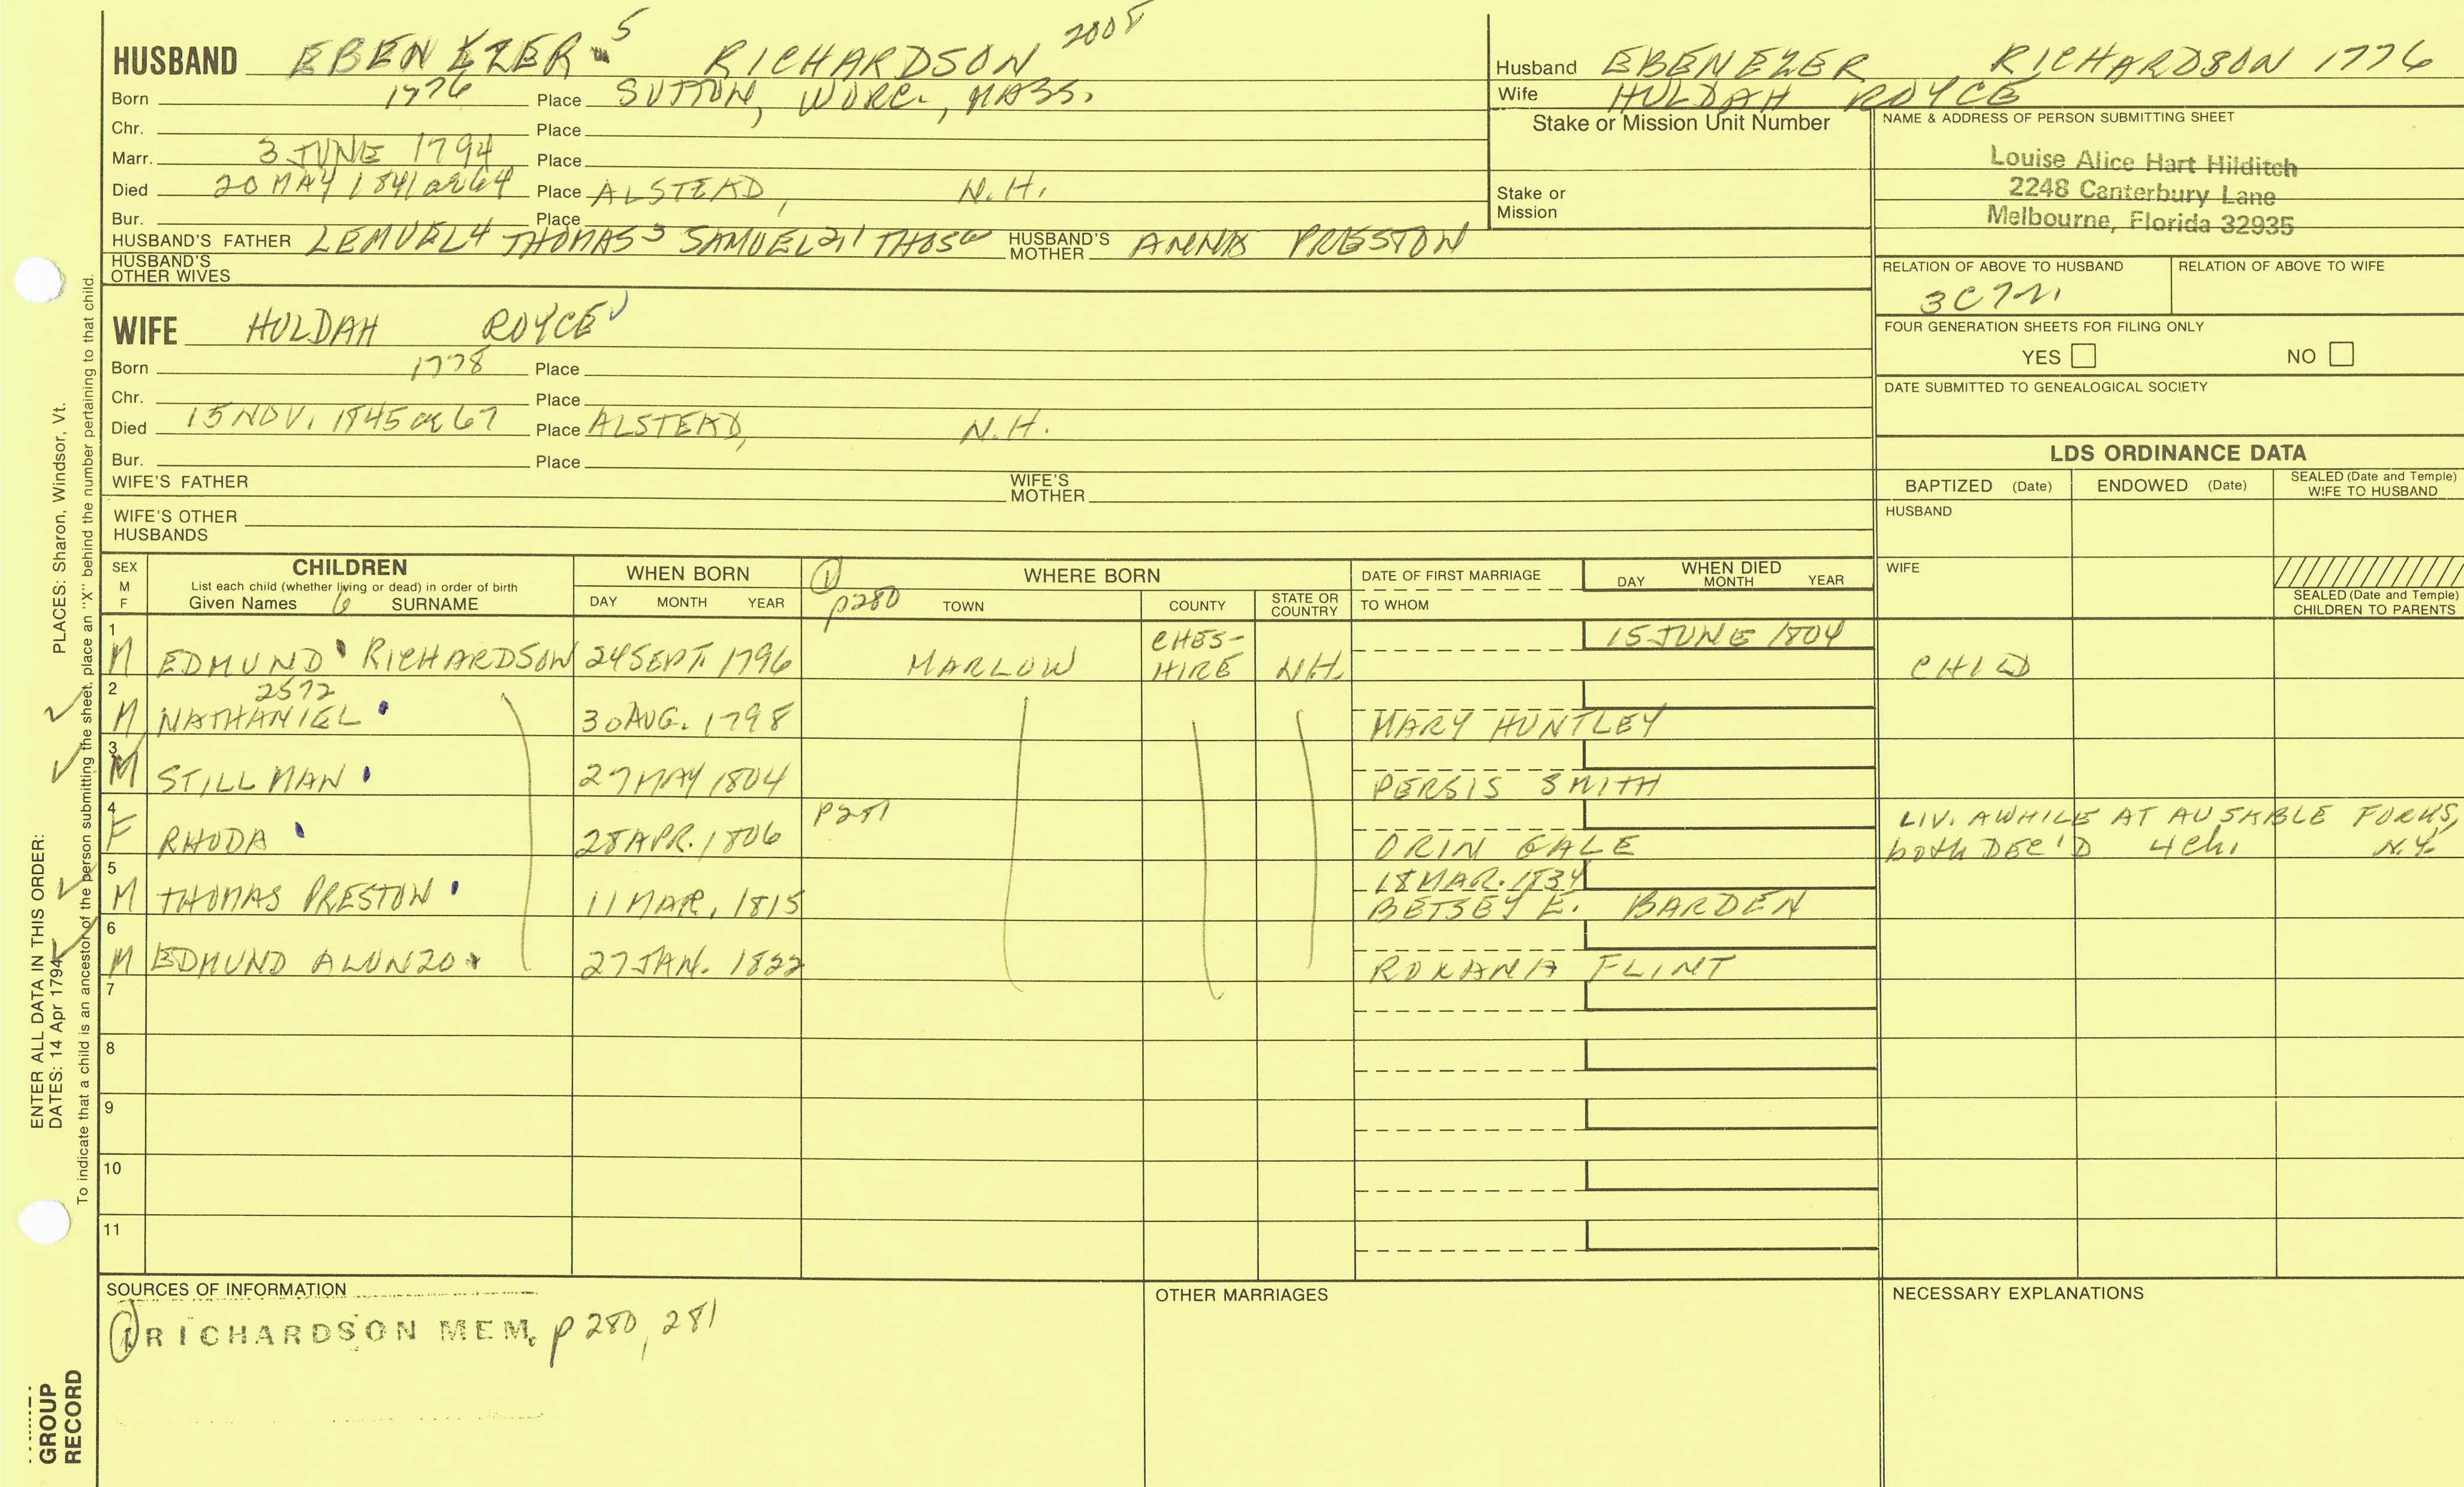 HUSBAND EBENEZER 5 RICHARDSON 2008
Born 1776 Place SUTTON, WORC., MASS.
Chr. Place
Marr. 3 JUNE 1794 Place
Died 20 MAY 1841 ae 64 Place ALSTEAD, N.H.
Bur. Place
HUSBAND'S FATHER LEMUEL4 THOMAS3 SAMUEL2,1 THOS HUSBAND'S MOTHER ANNA PRESTON
HUSBAND'S OTHER WIVES
Husband EBENEZER RICHARDSON 1776
Wife HULDAH ROYCE
Stake or Mission Unit Number
Stake or Mission
NAME & ADDRESS OF PERSON SUBMITTING SHEET
Louise Alice Hart Hilditch
2248 Canterbury Lane
Melbourne, Florida 32935
RELATION OF ABOVE TO HUSBAND RELATION OF ABOVE TO WIFE
3C7R
FOUR GENERATION SHEETS FOR FILING ONLY
YES NO
DATE SUBMITTED TO GENEALOGICAL SOCIETY
WIFE HULDAH ROYCE
Born 1778 Place
Chr. Place
Died 15 NOV. 1845 ae 67 Place ALSTEAD, N.H.
Bur. Place
WIFE'S FATHER WIFE'S MOTHER
WIFE'S OTHER HUSBANDS
LDS ORDINANCE DATA
BAPTIZED (Date) ENDOWED (Date) SEALED (Date and Temple) WIFE TO HUSBAND
HUSBAND
WIFE
SEALED (Date and Temple) CHILDREN TO PARENTS
SEX M F
CHILDREN
List each child (whether living or dead) in order of birth
Given Names 6 SURNAME
WHEN BORN
DAY MONTH YEAR
1 p280
WHERE BORN
TOWN COUNTY STATE OR COUNTRY
DATE OF FIRST MARRIAGE
TO WHOM
WHEN DIED
DAY MONTH YEAR
1 M EDMUND RICHARDSON 24 SEPT. 1796 MARLOW CHES-HIRE N.H. 15 JUNE 1804 CHILD
2 M 2572 NATHANIEL 30 AUG. 1798 MARY HUNTLEY
3 M STILLMAN 27 MAY 1804 PERSIS SMITH
4 F RHODA 28 APR. 1806 p281 ORIN GALE LIV. AWHILE AT AUSABLE FORKS, N.Y. both DEC'D 4 ch.
5 M THOMAS PRESTON 11 MAR. 1815 18 MAR. 1834 BETSEY E. BARDEN
6 M EDMUND ALONZO 27 JAN. 1822 ROXANA FLINT
7
8
9
10
11
SOURCES OF INFORMATION
1 RICHARDSON MEM. p 280, 281
OTHER MARRIAGES
NECESSARY EXPLANATIONS
PLACES: Sharon, Windsor, Vt.
ENTER ALL DATA IN THIS ORDER:
DATES: 14 Apr 1794
To indicate that a child is an ancestor of the person submitting the sheet, place an "X" behind the number pertaining to that child.
GROUP
RECORD